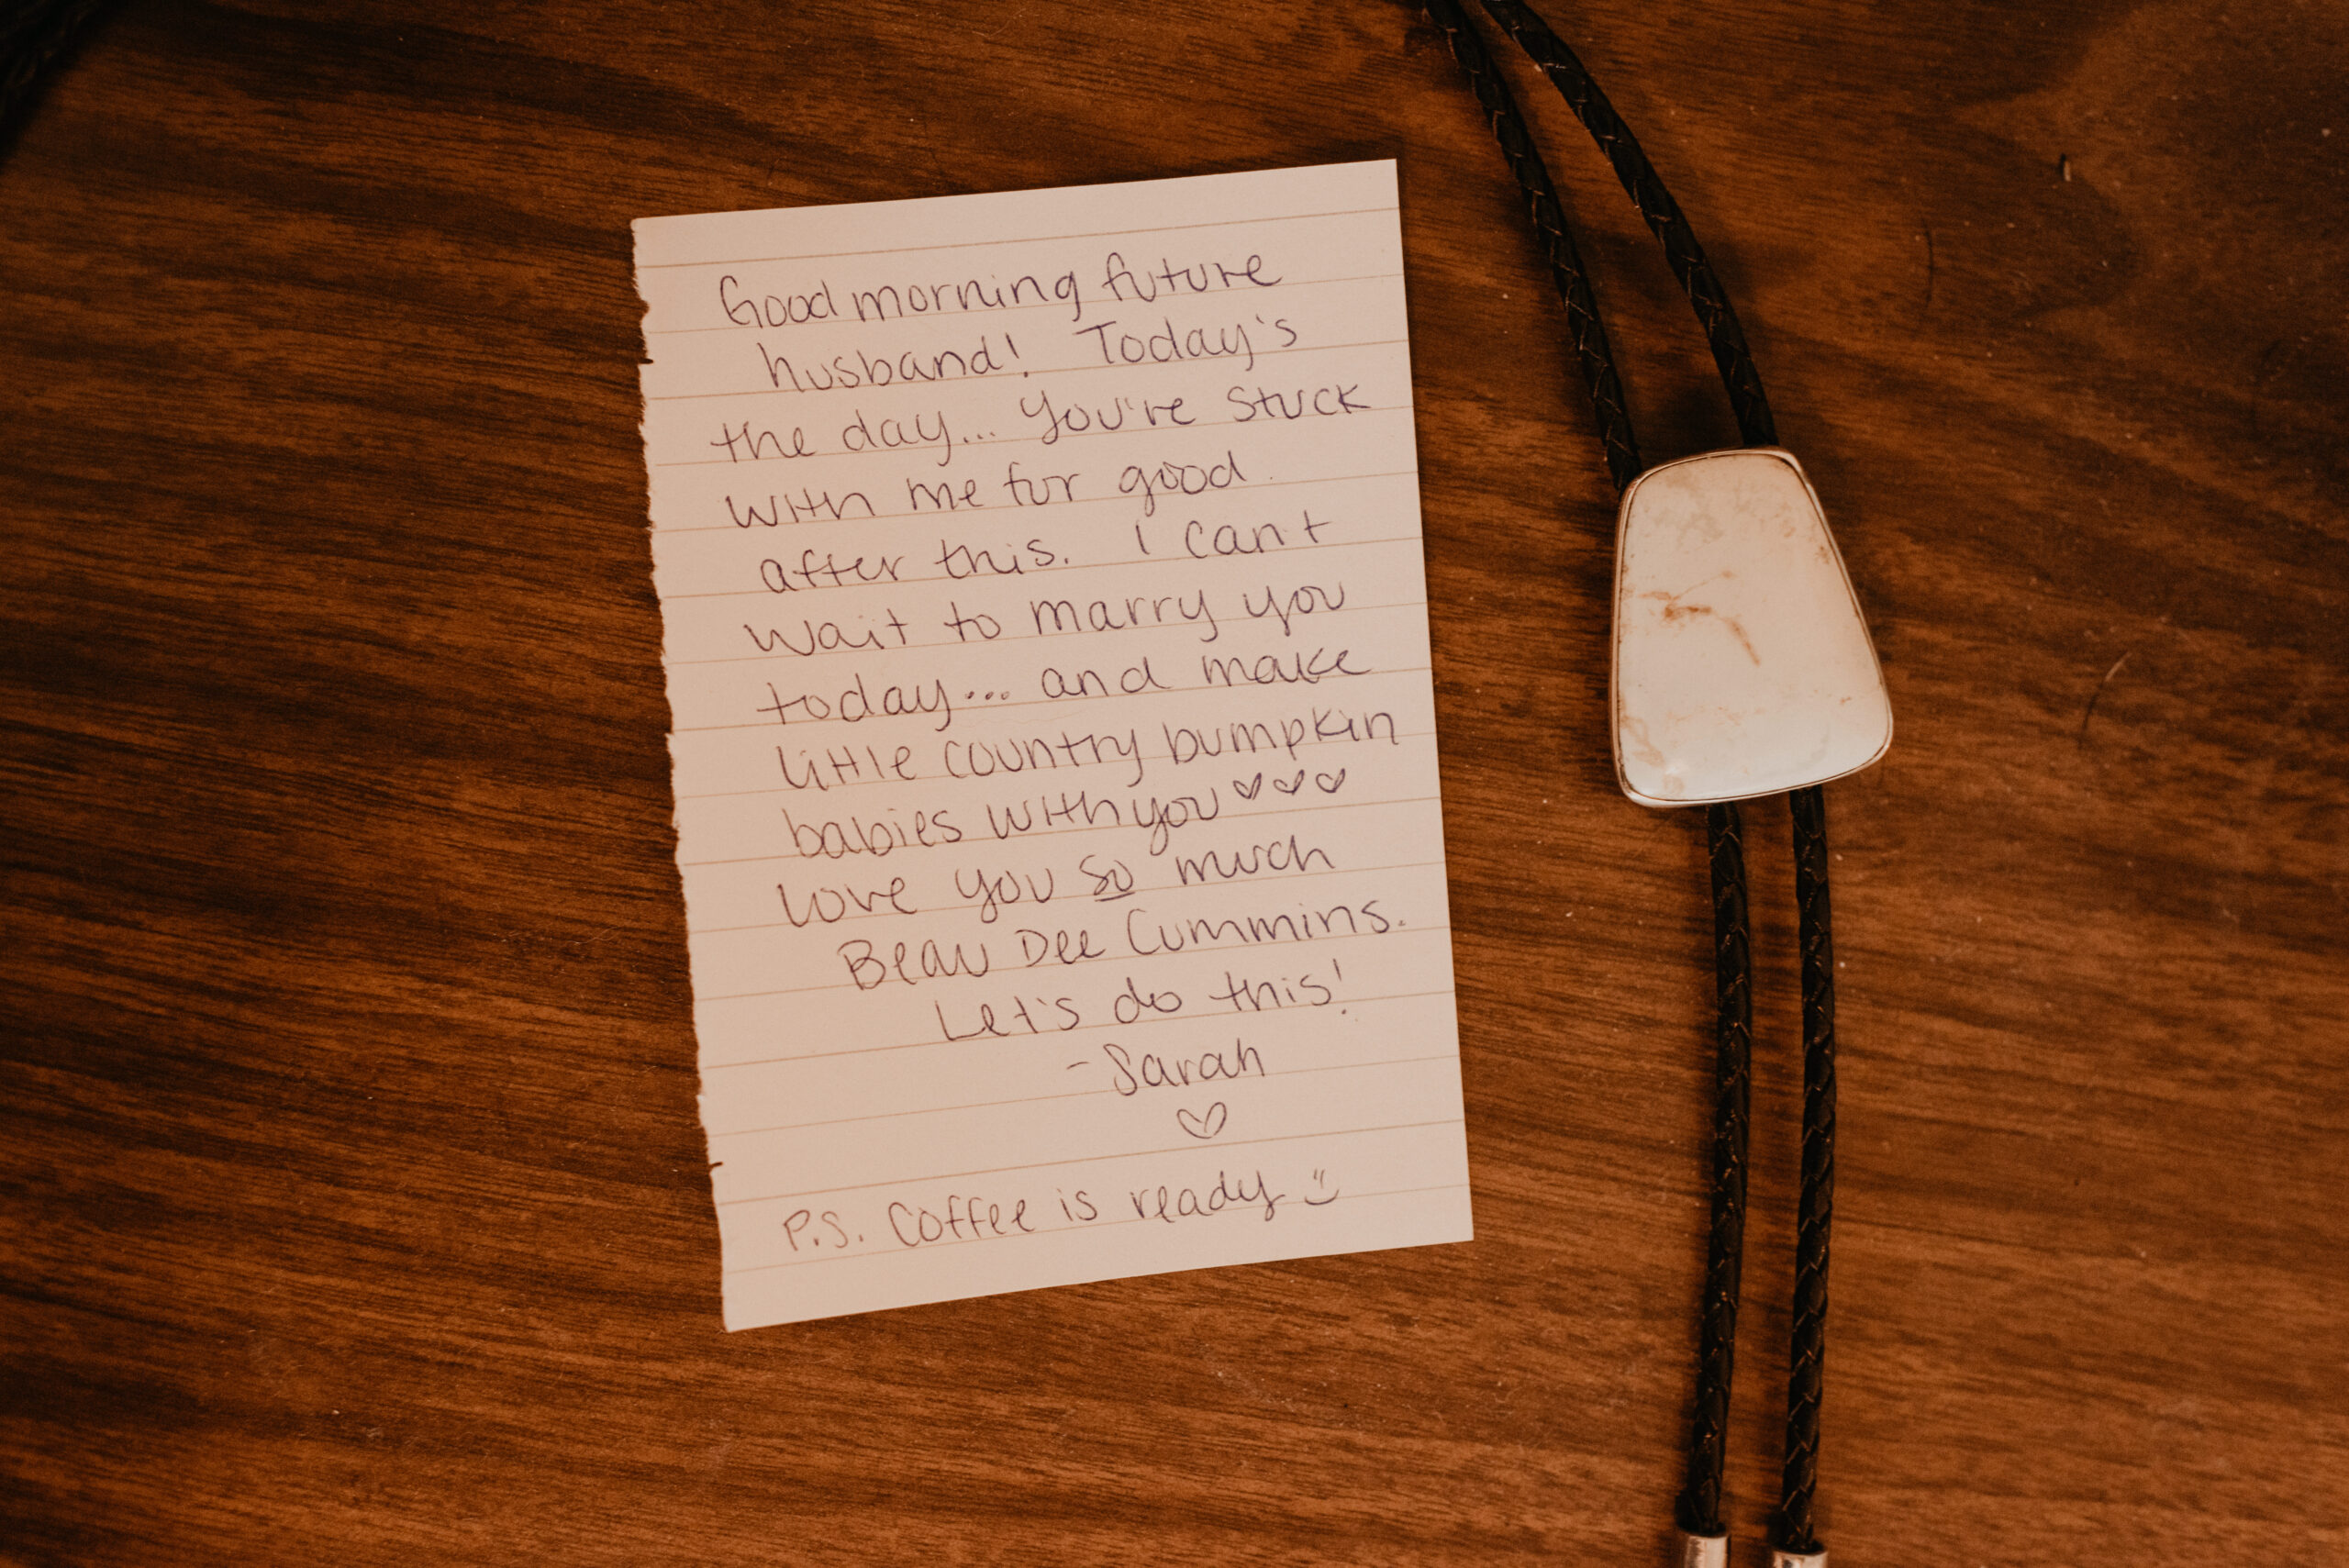 Good morning future
husband! Today's
the day... you're stuck
with me for good
after this. I can't
wait to marry you
today... and make
little country bumpkin
babies with you ♡♡♡
Love you so much
Beau Dee Cummins.
Let's do this!
- Sarah
♡
P.S. Coffee is ready :)